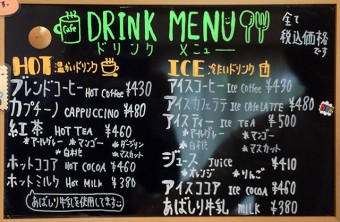 cafe DRINK MENU
ドリンク メニュー
全て
税込価格
です
HOT 温かいドリンク
ブレンドコーヒー HOT Coffee ¥430
カプチーノ CAPPUCCINO ¥480
紅茶 HOT TEA ¥460
*アールグレー *マンゴー *ダージリン
*白桃 *マスカット
ホットココア HOT COCOA ¥460
ホットミルク HOT MILK ¥380
あばしり牛乳を使用してます
ICE 冷たいドリンク
アイスコーヒー ICE Coffee ¥430
アイスカフェラテ ICE CAFE LATTE ¥480
アイスティー ICE TEA ¥500
*アールグレー *マンゴー
*白桃 *マスカット
ジュース JUICE ¥410
*オレンジ *りんご
アイスココア ICE COCOA ¥460
あばしり牛乳 MILK ¥380